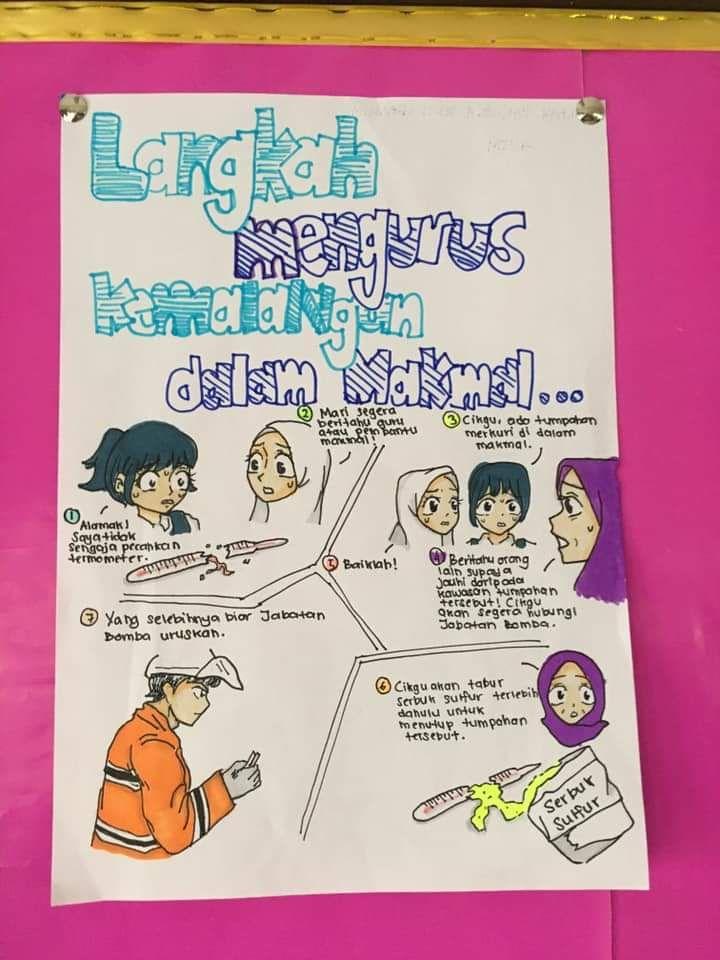 Langkah
mengurus
kemalangan
dalam Makmal...
1 Alamak!
Saya tidak
sengaja pecahkan
termometer.
2 Mari segera
beritahu guru
atau pembantu
makmal!
3 Cikgu, ada tumpahan
merkuri di dalam
makmal.
4 Beritahu orang
lain supaya
jauhi daripada
kawasan tumpahan
tersebut! Cikgu
akan segera hubungi
Jabatan Bomba.
5 Baiklah!
6 Cikgu akan tabur
serbuk sulfur terlebih
dahulu untuk
menutup tumpahan
tersebut.
Serbuk
Sulfur
7 Yang selebihnya biar Jabatan
Bomba uruskan.